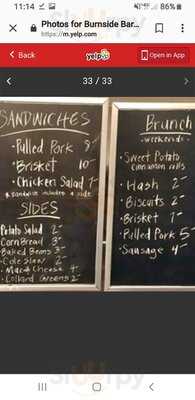 11:14
86%
Photos for Burnside Bar...
https://m.yelp.com
Back
yelp
Open in App
33 / 33
SANDWICHES
• Pulled Pork 9
• Brisket 10
• Chicken Salad 7
* Sandwich includes a side
SIDES
Potato Salad 2
Corn Bread 3
• Baked Beans 3
• Cole Slaw 2
• Mac & Cheese 4
• Collard Greens 2
Brunch
-weekends-
• Sweet Potato
cinnamon rolls
• Hash 2
• Biscuits 2
• Brisket 7
• Pulled Pork 5
• Sausage 4